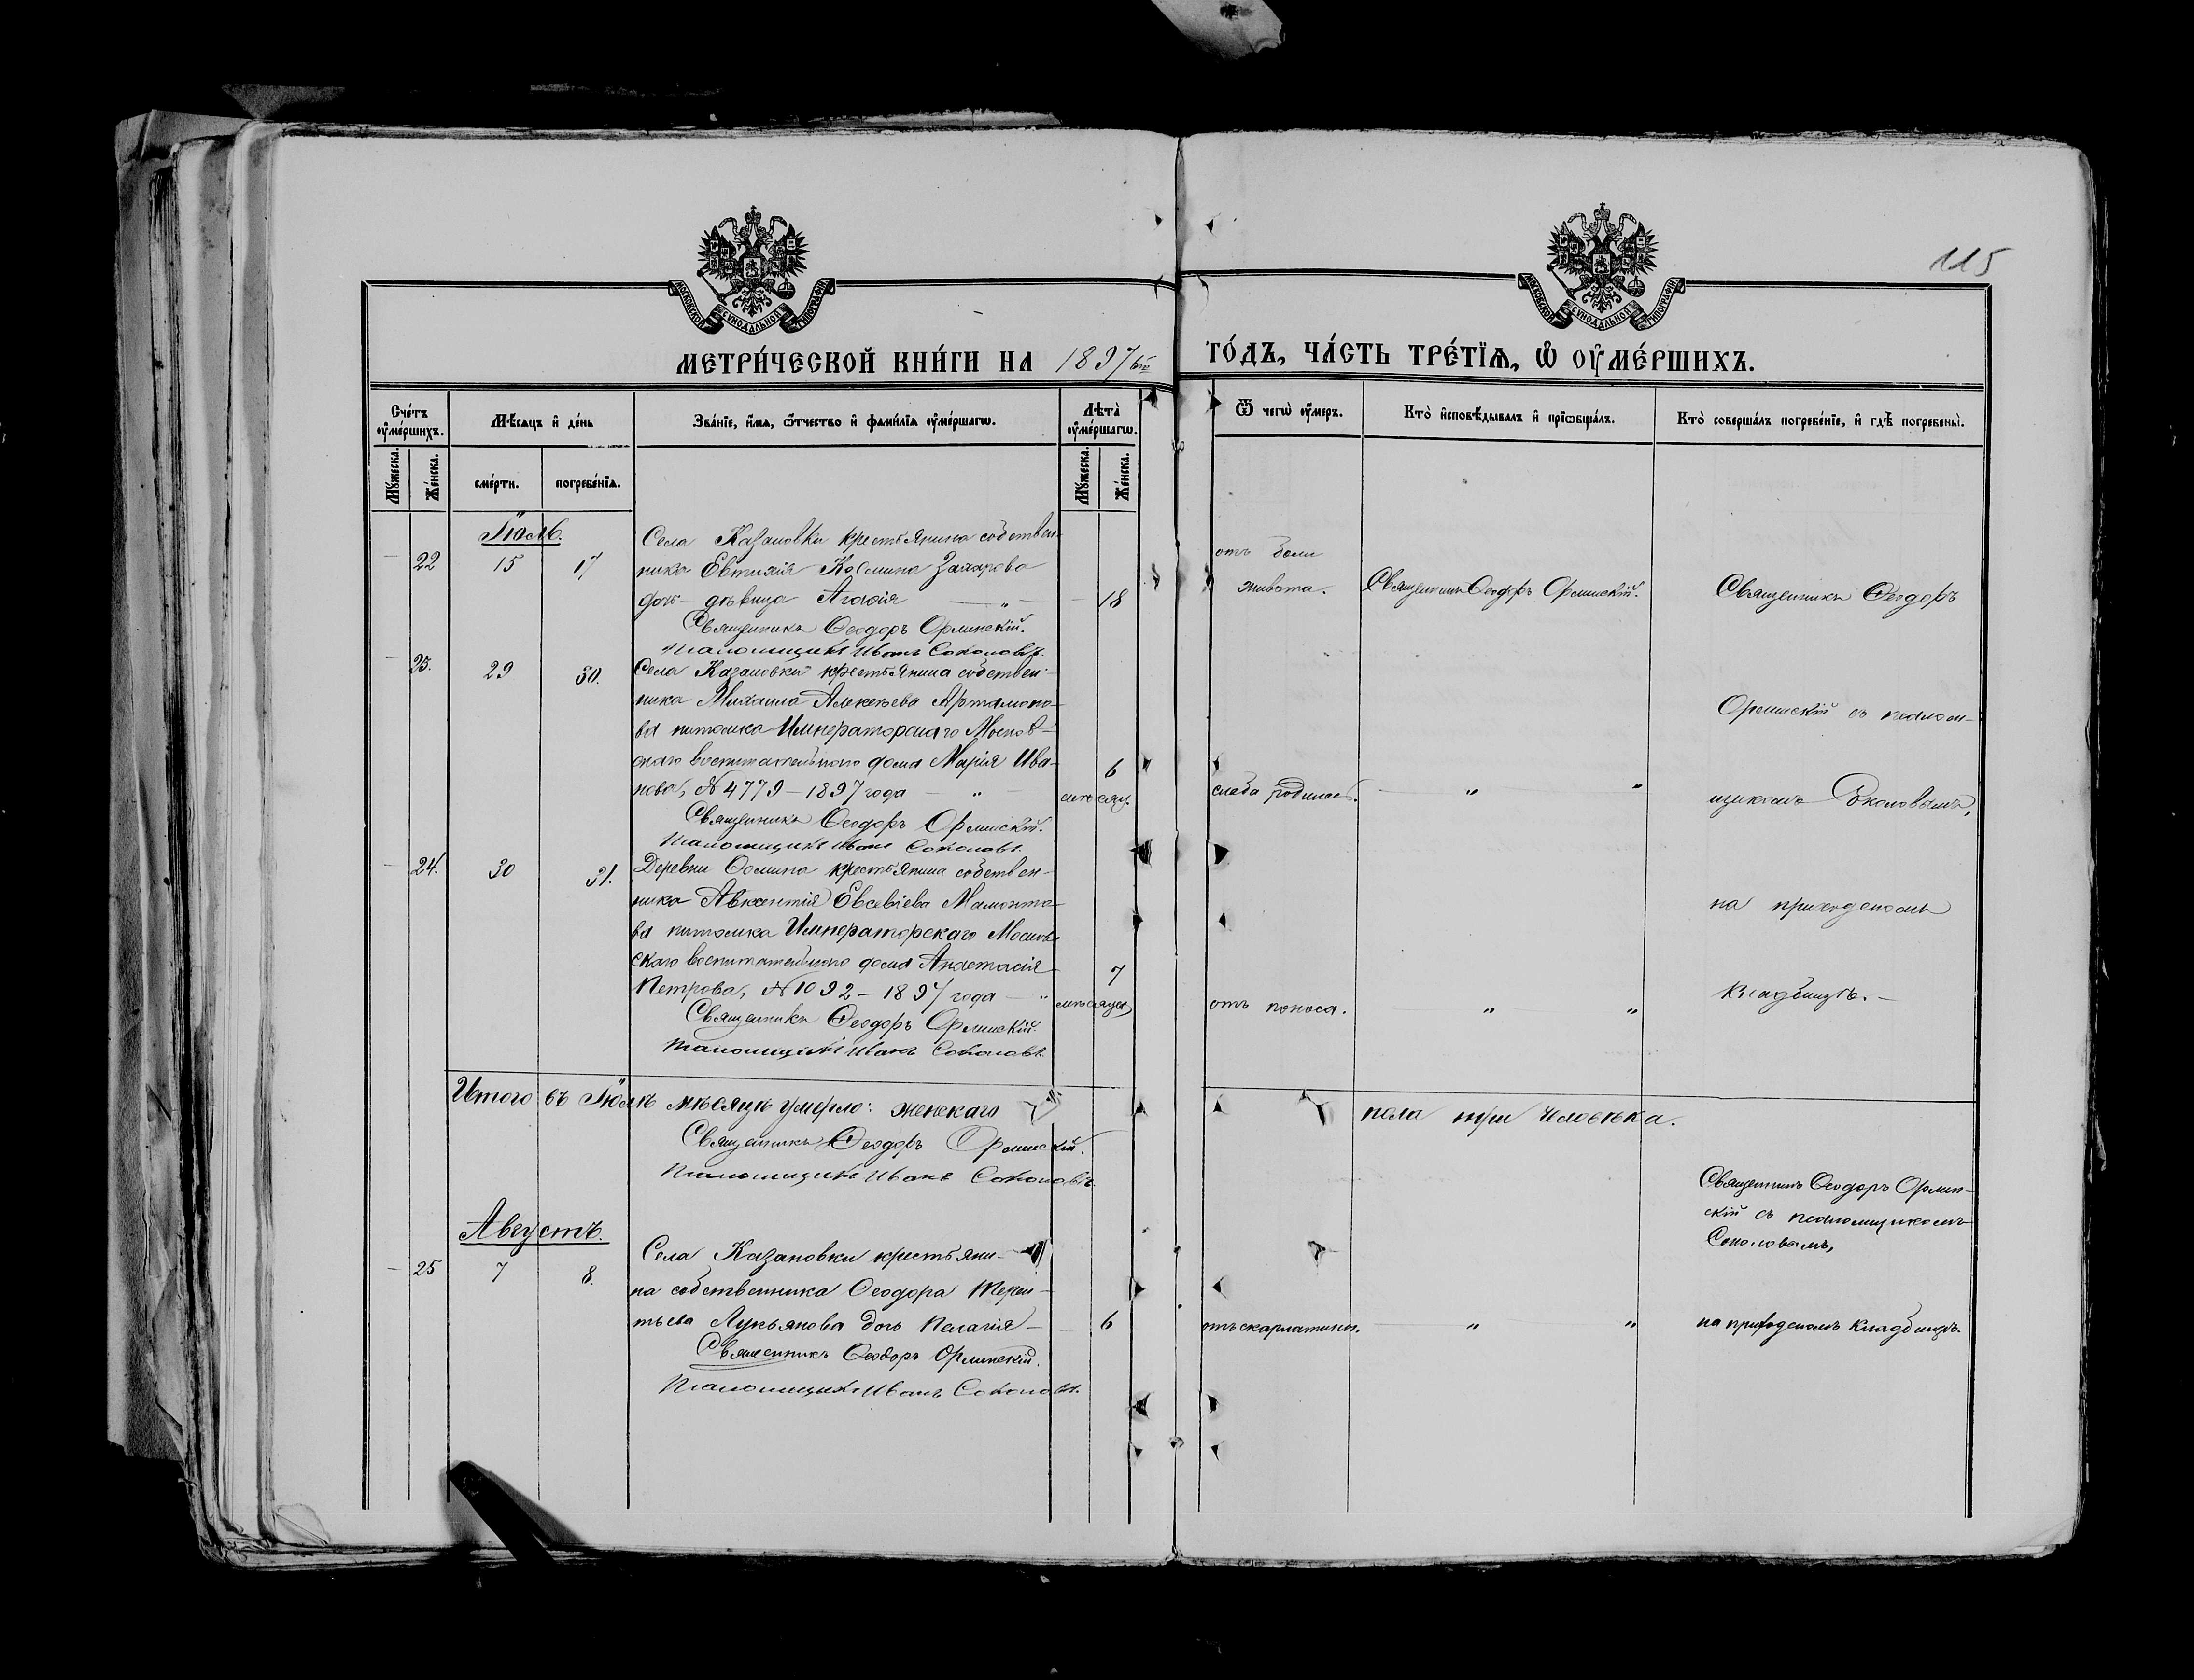 МОСКОВСКОЙ СѴНОДАЛЬНОЙ ТИПОГРАФІИ
МОСКОВСКОЙ СѴНОДАЛЬНОЙ ТИПОГРАФІИ
115
МЕТРИ́ЧЕСКОЙ КНИ́ГИ НА 1897 ый ГО́ДЪ, ЧА́СТЬ ТРЕ́ТІѦ, Ѡ ОУ҆МЕ́РШИХЪ.
Сче́тъ оу҆ме́ршихъ.
Мꙋ́жеска.
Же́нска.
Мѣ́сѧцъ и҆ де́нь
сме́рти.
погребе́нїѧ.
Зва́нїе, и҆́мѧ, ѻ҆́тчество и҆ фами́лїѧ оу҆ме́ршагѡ.
Лѣ́та оу҆ме́ршагѡ.
Мꙋ́жеска.
Же́нска.
Ѿ чегѡ̀ оу҆́меръ.
Кто̀ и҆сповѣ́дывалъ и҆ прїѡбща́лъ.
Кто̀ соверша́лъ погребе́нїе, и҆ гдѣ̀ погребены̀.
Іюль.
22 15 17
Села Казановки крестьянина собствен-
ника Евтихія Косьмина Захарова
дочь девица Агаѳія — „ — 18
Священникъ Ѳеодоръ Орлинскій.
Псаломщикъ Иванъ Соколовъ.
отъ боли
живота.
Священникъ Ѳеодоръ Орлинскій.
Священникъ Ѳеодоръ
23. 29 30.
Села Казановки крестьянина собствен-
ника Михаила Алексѣева Артамоно-
ва питомка Императорскаго Москов-
скаго воспитательнаго дома Марія Ива-
нова, № 4779 – 1897 года — „ — 6 мѣсяц.
Священникъ Ѳеодоръ Орлинскій.
Псаломщикъ Иванъ Соколовъ.
слаба родилась. — „ „
Орлинскій съ псалом-
щикомъ Соколовымъ,
24. 30 31.
Деревни Ѳомина крестьянина собствен-
ника Авксентія Евсевіева Мамонто-
ва питомка Императорскаго Москов-
скаго воспитательнаго дома Анастасія
Петрова, № 1092 – 1897 года — „ 7 мѣсяцев
Священникъ Ѳеодоръ Орлинскій.
Псаломщикъ Иванъ Соколовъ
отъ поноса. „ „
на приходскомъ
кладбищѣ. —
Итого въ Іюлѣ мѣсяцѣ умерло: женскаго пола три человѣка.
Священникъ Ѳеодоръ Орлинскій.
Псаломщикъ Иванъ Соколовъ
Августъ.
25 7 8.
Села Казановки крестьяни-
на собственника Ѳеодора Терен-
тьева Лукьянова дочь Пелагія — 6
Священникъ Ѳеодоръ Орлинскій.
Псаломщикъ Иванъ Соколовъ.
отъ скарлатины. — „ „
Священникъ Ѳеодоръ Орлин-
скій съ псаломщикомъ
Соколовымъ,
на приходскомъ кладбищѣ.